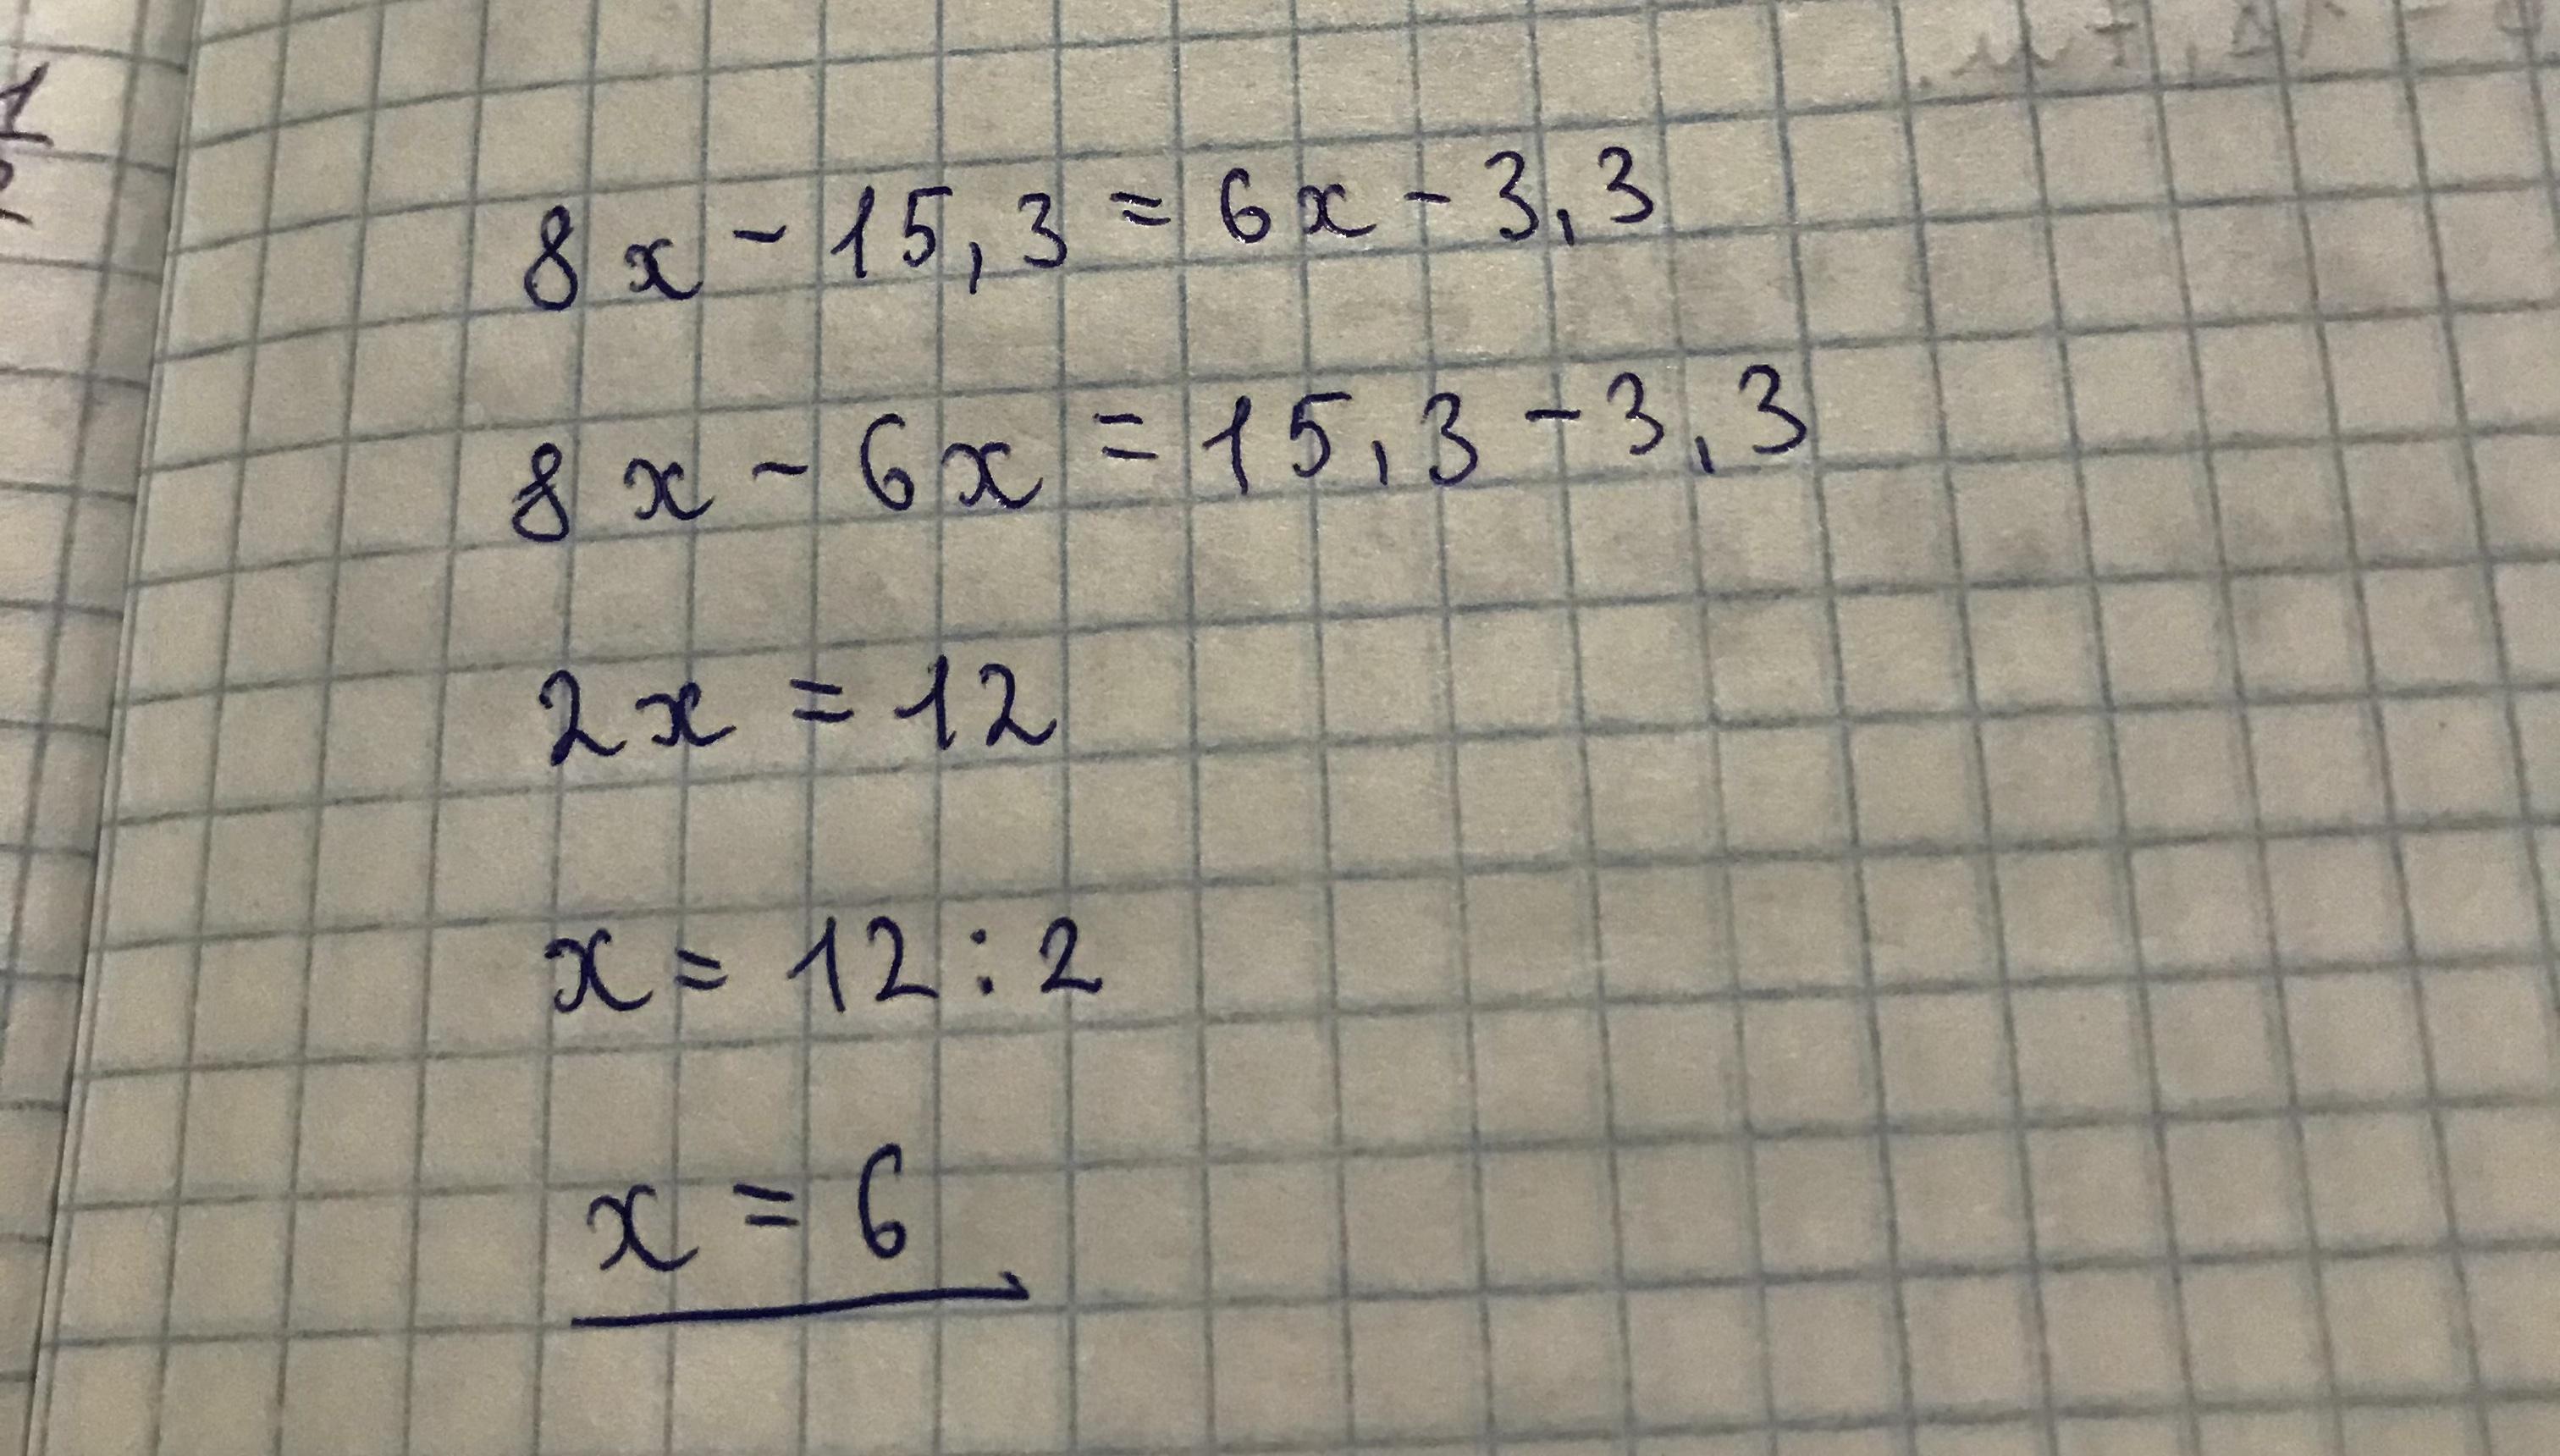 8x - 15,3 = 6x - 3,3
8x - 6x = 15,3 - 3,3
2x = 12
x = 12 : 2
x = 6